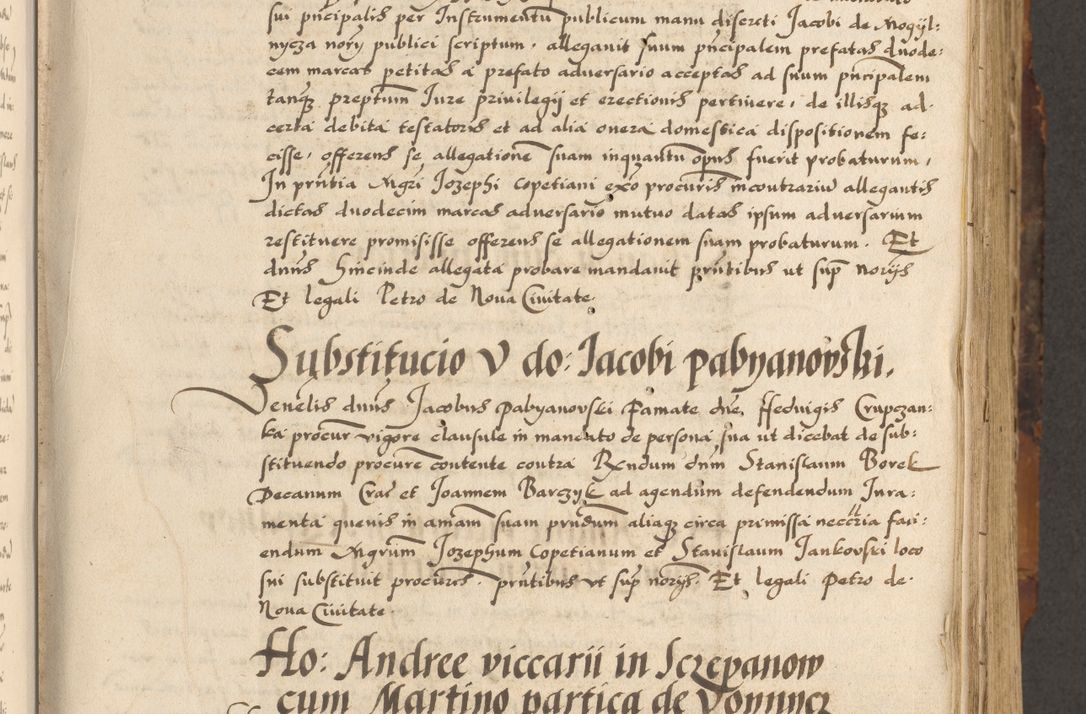 sui pncipalis per Instrumentū publicum manu discreti Jacobi de Mogÿl:
nycza norÿ publici scriptum, allegavit suum pncipalem prefatas duode:
cem marcas petitas a prefato adversario acceptas ad suum pncipalem
tanqȝ preptum Jure privilegÿ et erectionis pertinere, de illisqȝ ad.
certa debita testatoris et ad alia onera domestica dispositionem fe:
cisse, offerens se allegationē suam inquantū opus fuerit probaturum,
In pntia Mgri Jozephi Copetiani exō procuris incontrariū allegantis
dictas duodecim marcas adversario mutuo datas ipsum adversarium
restituere promisisse offerens se allegationem suam probaturum. Et
dnus hincinde allegata probare mandavit pntibus ut sup norÿs
Et legali Petro de Nova Civitate.
Substitucio v do: Jacobi pabyanovski.
Venelis dnus Jacobus Pabyanovski Famate dne, Hedvigis Crupczan:
ka procur vigore clausule in mandato de persona sua ut dicebat de sub:
stituendo procurē contente contra Rendum dnm Stanislaum Borek
Decanum Crac et Joannem Barczyk ad agendum defendendum Jura:
menta quevis in amam suam prndum aliaqȝ circa premissa neccria faci:
endum Mgrum Jozephum Copetianum et Stanislaum Jankovski loco
sui substituit procures. pntibus ut sup norÿs. Et legali Petro de
Nova Civitate.
Ho: Andree viccarii in Sczepanow
cum Martino partica de